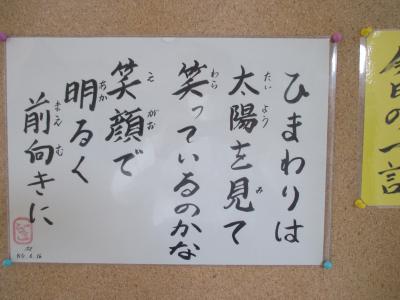 ひまわりは
太陽を見て
たいよう
み
笑っているのかな
わら
笑顔で
えがお
明るく
あか
前向きに
まえむ